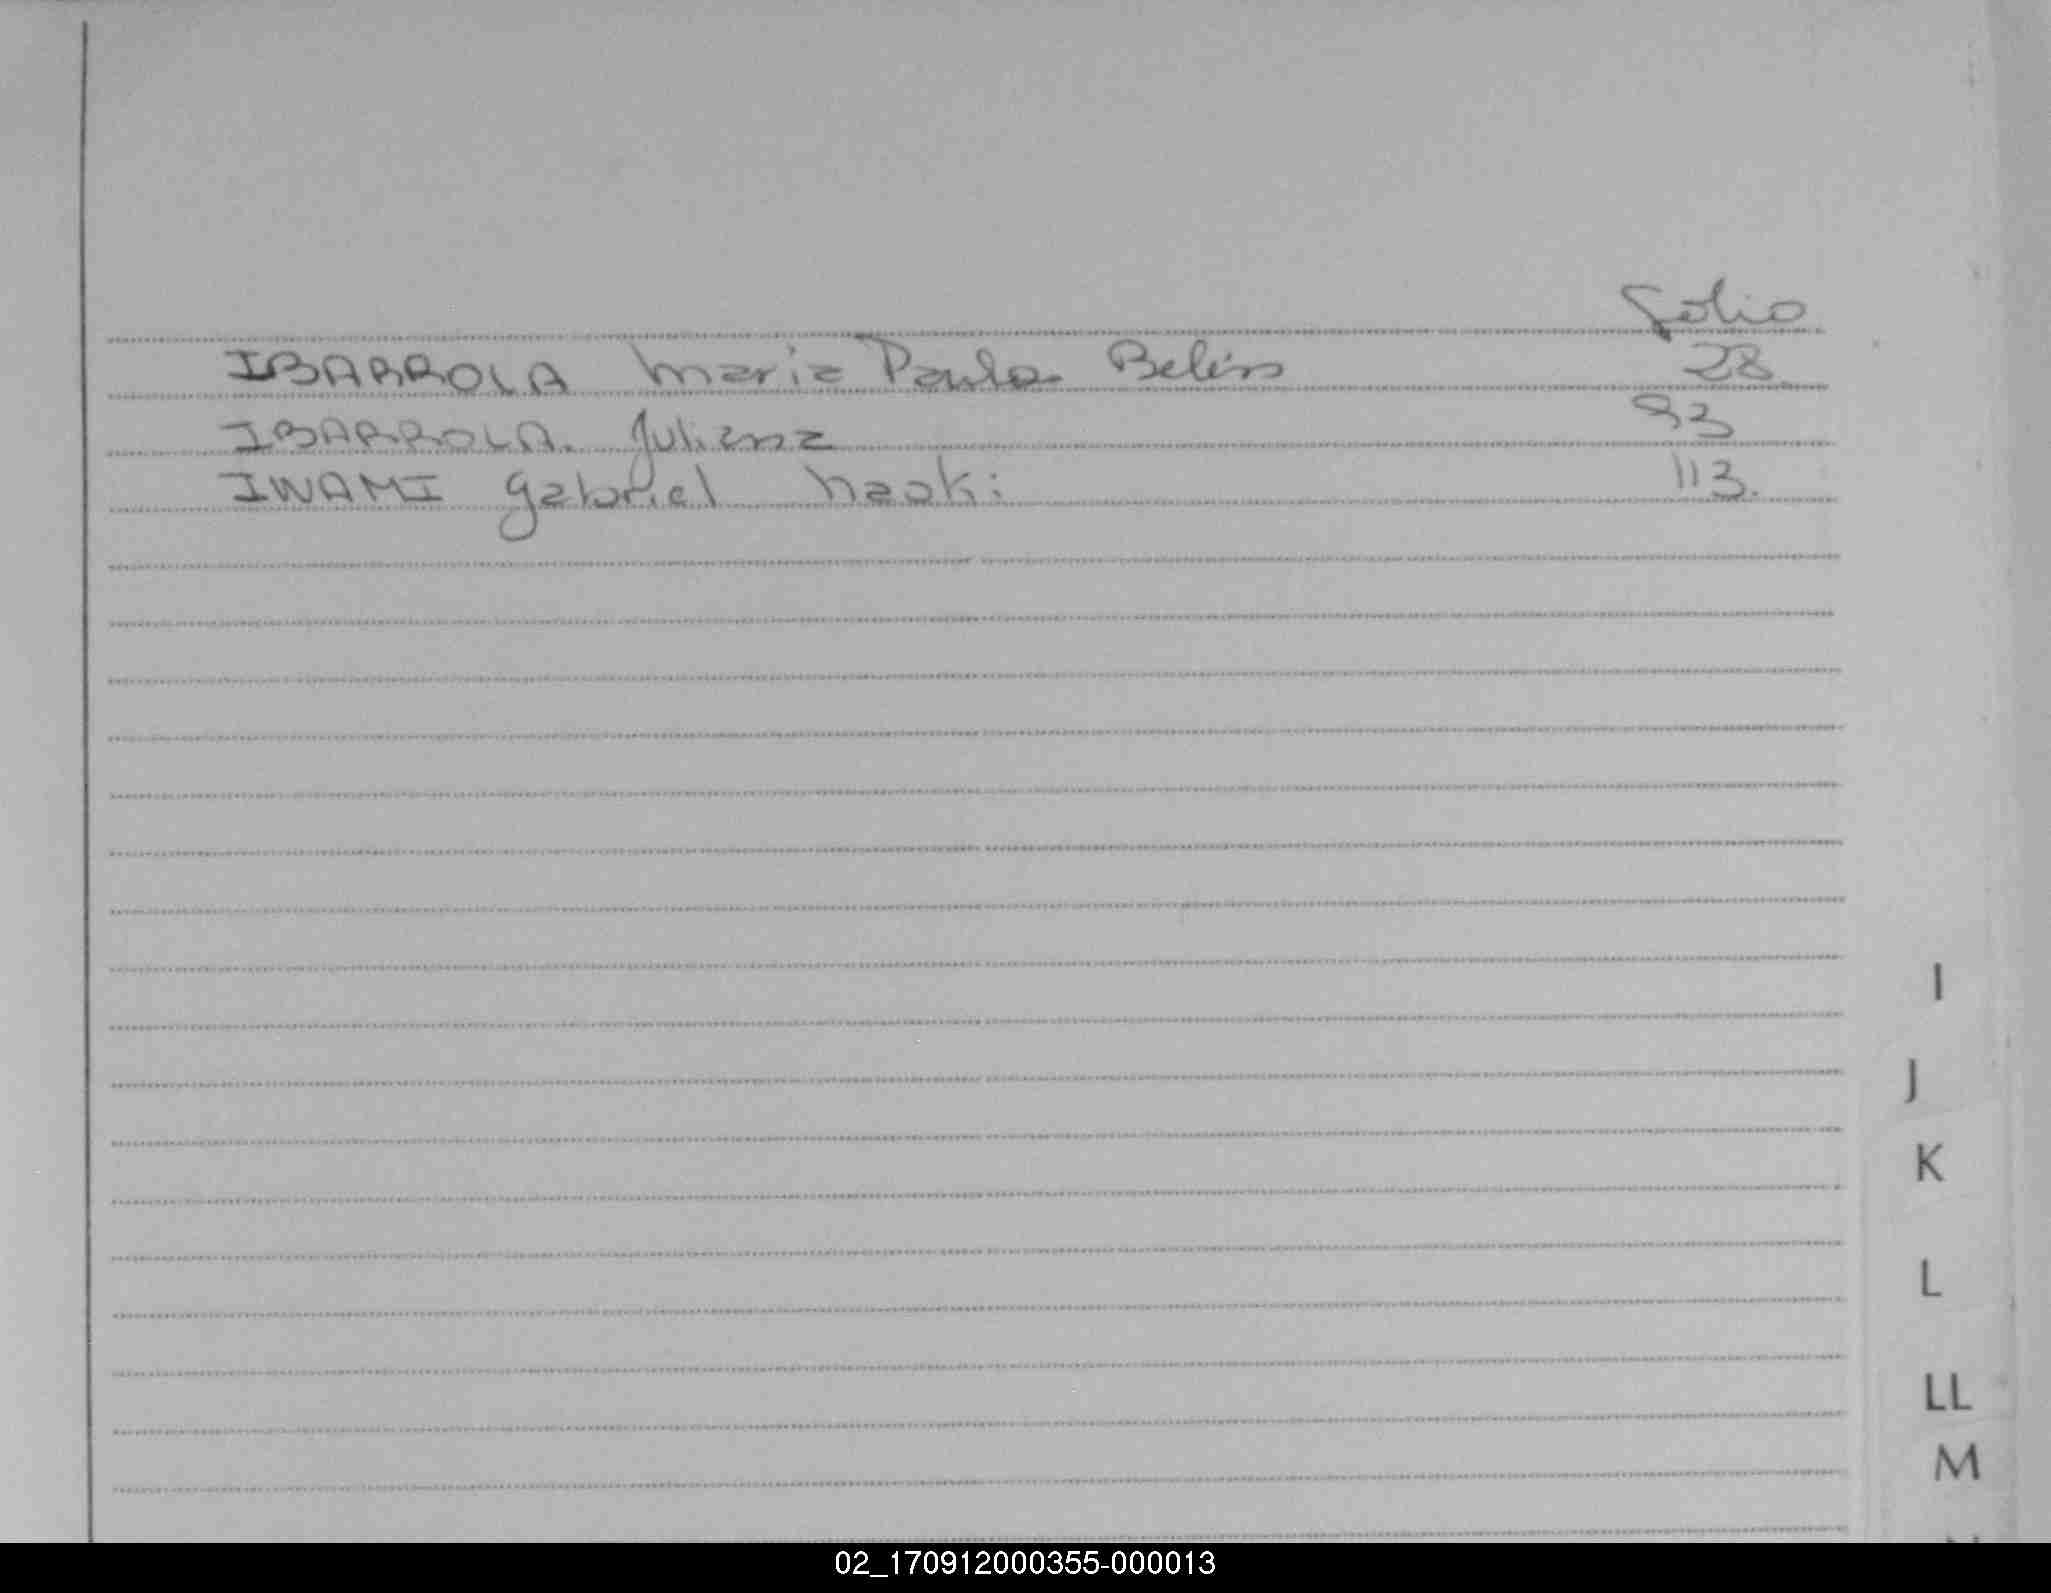 Folio
IBARROLA Maria Paula Belén 28
IBARROLA. Juliana 93
IWAMI Gabriel Naoki 113.
I
J
K
L
LL
M
02_170912000355-000013